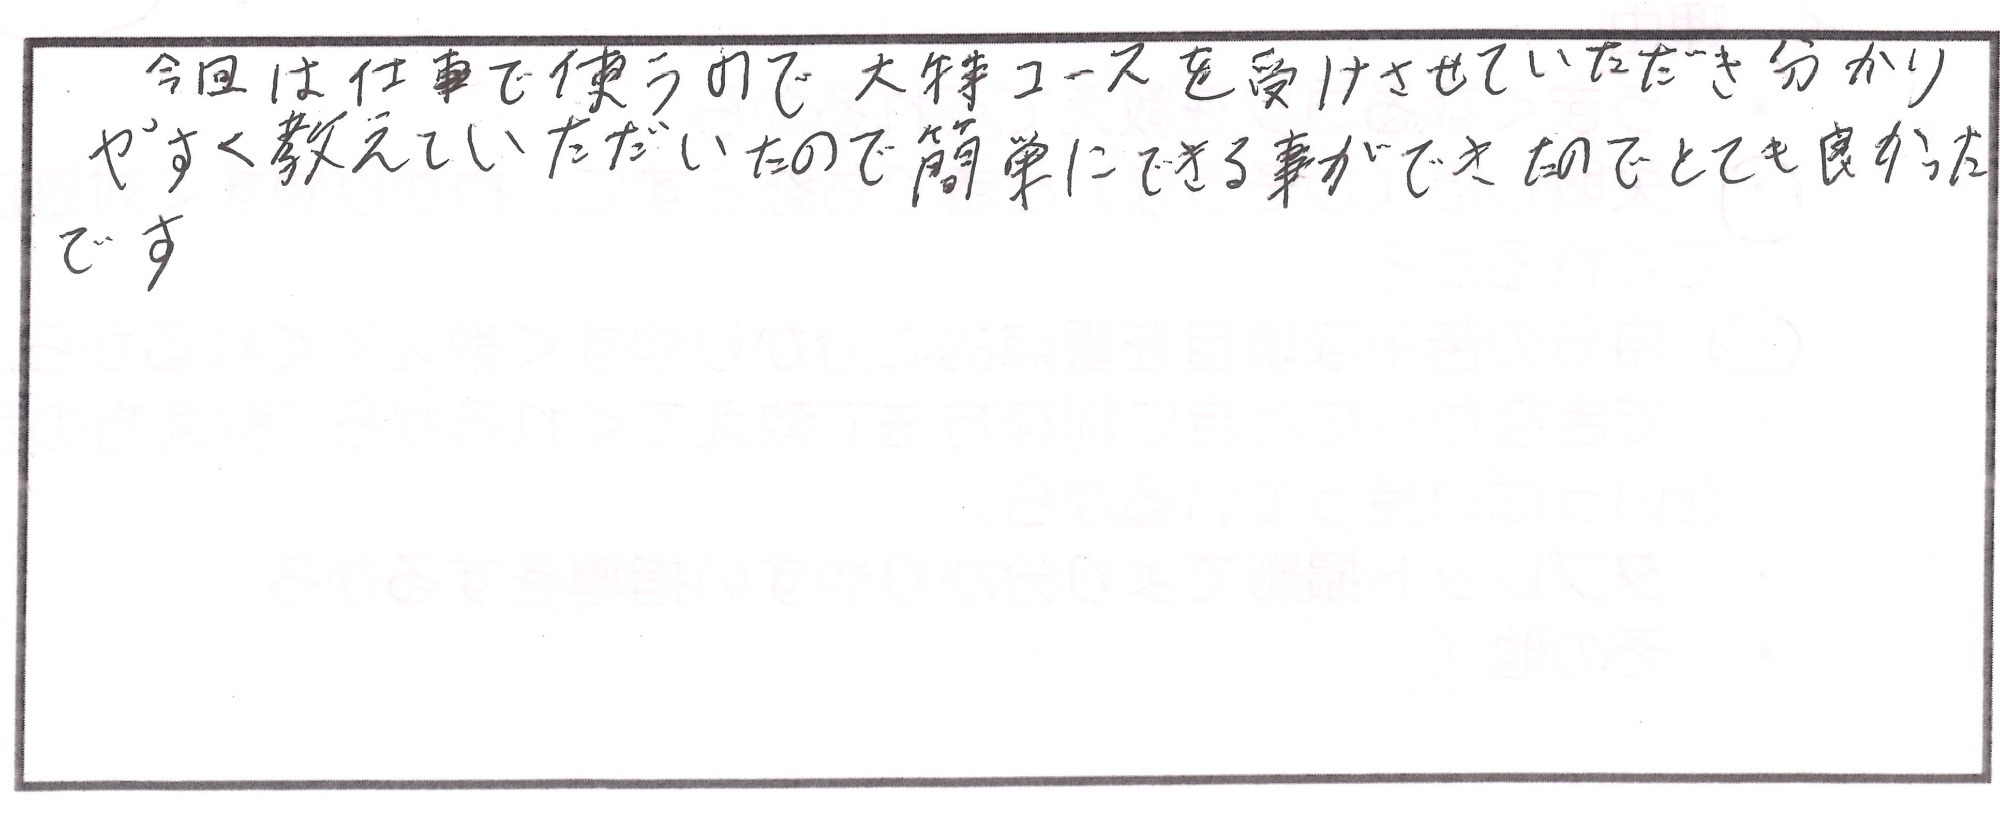 今回は仕事で使うので大特コースを受けさせていただき分かり
やすく教えていただいたので簡単にできる事ができたのでとても良かった
です